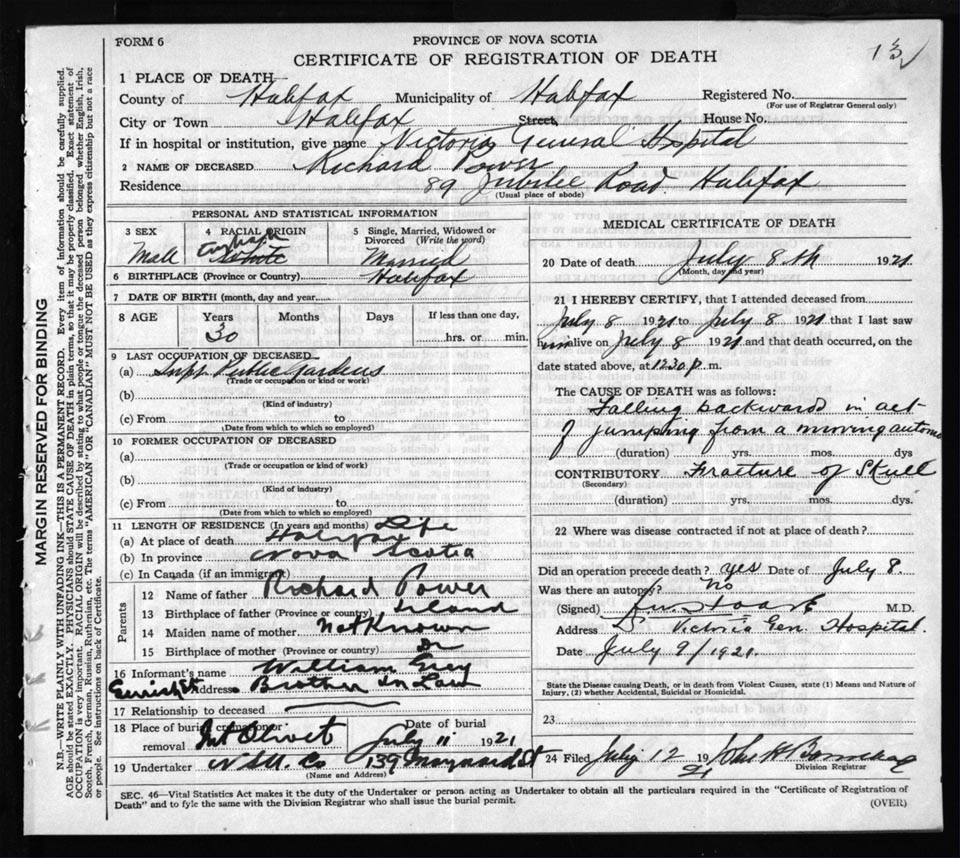 FORM 6
PROVINCE OF NOVA SCOTIA
CERTIFICATE OF REGISTRATION OF DEATH
1 PLACE OF DEATH
County of Halifax Municipality of Halifax Registered No.
(For use of Registrar General only)
City or Town Halifax Street, House No.
If in hospital or institution, give name Victoria General Hospital
2 NAME OF DECEASED Richard Power
Residence 89 Jubilee Road Halifax
(Usual place of abode)
PERSONAL AND STATISTICAL INFORMATION
3 SEX
Male
4 RACIAL ORIGIN
English
White
5 Single, Married, Widowed or
Divorced (Write the word)
Married
6 BIRTHPLACE (Province or Country) Halifax
7 DATE OF BIRTH (month, day and year)
8 AGE Years Months Days If less than one day,
30 hrs. or min.
9 LAST OCCUPATION OF DECEASED
(a) Supt Public Gardens
(Trade or occupation or kind of work)
(b)
(Kind of industry)
(c) From to
(Date from which to which so employed)
10 FORMER OCCUPATION OF DECEASED
(a)
(Trade or occupation or kind of work)
(b)
(Kind of industry)
(c) From to
(Date from which to which so employed)
11 LENGTH OF RESIDENCE (In years and months) Life
(a) At place of death Halifax
(b) In province Nova Scotia
(c) In Canada (if an immigrant)
Parents
12 Name of father Richard Power
13 Birthplace of father (Province or country) Ireland
14 Maiden name of mother Not Known
15 Birthplace of mother (Province or country)
16 Informant's name William Grey
Address Brother In Law
17 Relationship to deceased
18 Place of burial cremation or
removal Mt Olivet
Date of burial
July 11 1921
19 Undertaker N S U. Co 139 Maynard St
(Name and Address)
MEDICAL CERTIFICATE OF DEATH
20 Date of death July 8th 1921
(Month, day and year)
21 I HEREBY CERTIFY, that I attended deceased from
July 8 1921 to July 8 1921 that I last saw
him alive on July 8 1921 and that death occurred, on the
date stated above, at 12.30 p m.
The CAUSE OF DEATH was as follows:
Falling backwards in act
of jumping from a moving automo
(duration) yrs. mos. dys
CONTRIBUTORY Fracture of Skull
(Secondary)
(duration) yrs. mos. dys.
22 Where was disease contracted if not at place of death?
Did an operation precede death? yes Date of July 8.
Was there an autopsy? No
(Signed) M.D.
Address Victoria Gen. Hospital
Date July 9/1921.
State the Disease causing Death, or in death from Violent Causes, state (1) Means and Nature of
Injury, (2) whether Accidental, Suicidal or Homicidal.
23
24 Filed July 12 19 21 John H
Division Registrar
SEC. 46—Vital Statistics Act makes it the duty of the Undertaker or person acting as Undertaker to obtain all the particulars required in the "Certificate of Registration of
Death" and to fyle the same with the Division Registrar who shall issue the burial permit.
(OVER)
MARGIN RESERVED FOR BINDING
N.B.—WRITE PLAINLY WITH UNFADING INK—THIS IS A PERMANENT RECORD. Every item of information should be carefully supplied.
AGE should be stated EXACTLY. PHYSICIANS should STATE CAUSE OF DEATH in plain terms, so that it may be properly classified. Exact statement of
OCCUPATION is very important. RACIAL ORIGIN will be described by stating to what people or tongue the deceased person belonged whether English, Irish,
Scotch, French, German, Russian, Ruthenian, etc. The terms "AMERICAN" OR "CANADIAN" MUST NOT BE USED as they express citizenship but not a race
or people. See instructions on back of Certificate.